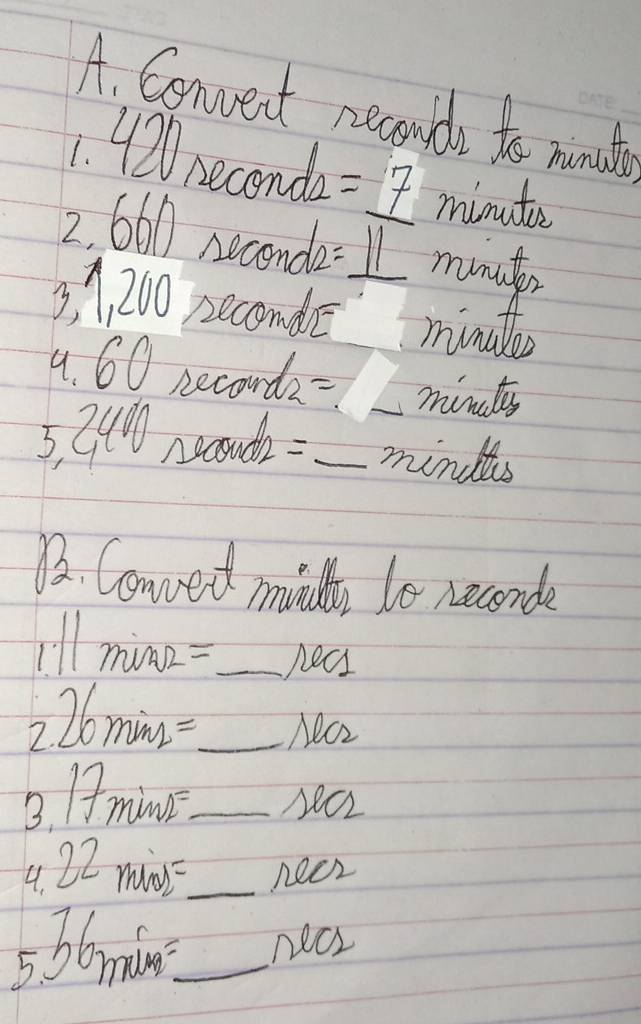 DATE
A. Convert seconds to minutes
1. 420 seconds = 7 minutes
2. 660 seconds= 11 minutes
3. 1,200 seconds= minutes
4. 60 seconds= _ minutes
5. 2,400 seconds = __ minutes
B. Convert minutes to seconds
1. 11 mins = ___ secs
2. 26 mins= ___ secs
3. 17 mins= ___ secs
4. 22 mins= ___ secs
5. 36 mins= ___ secs